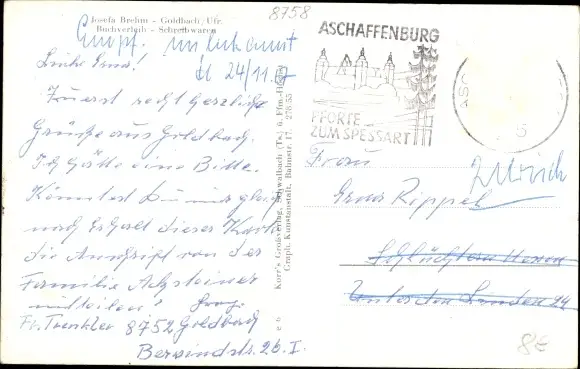 8758
Josefa Brehm - Goldbach/Ufr.
Buchverleih - Schreibwaren
Empf. unbekannt
24/11.
Liebe Erna!
Zuerst recht herzliche
Grüße aus Goldbach.
Ich hätte eine Bitte.
Könntest Du mir gleich
nach Erhalt dieser Karte
die Anschrift von der
Familie
mitteilen!
Fr. Trenkler 8752 Goldbach
Berwindstr. 26. I.
Korr's Großverlag, Schwalbach (Ts.) ü. Ffm.-Höchst
Graph. Kunstanstalt, Bahnstr. 17, 278.55
ASCHAFFENBURG
PFORTE
ZUM SPESSART
ASC
Frau
Erna Rippel
Zurück
Schlüchtern Hessen
Unter den Linden 24
8€